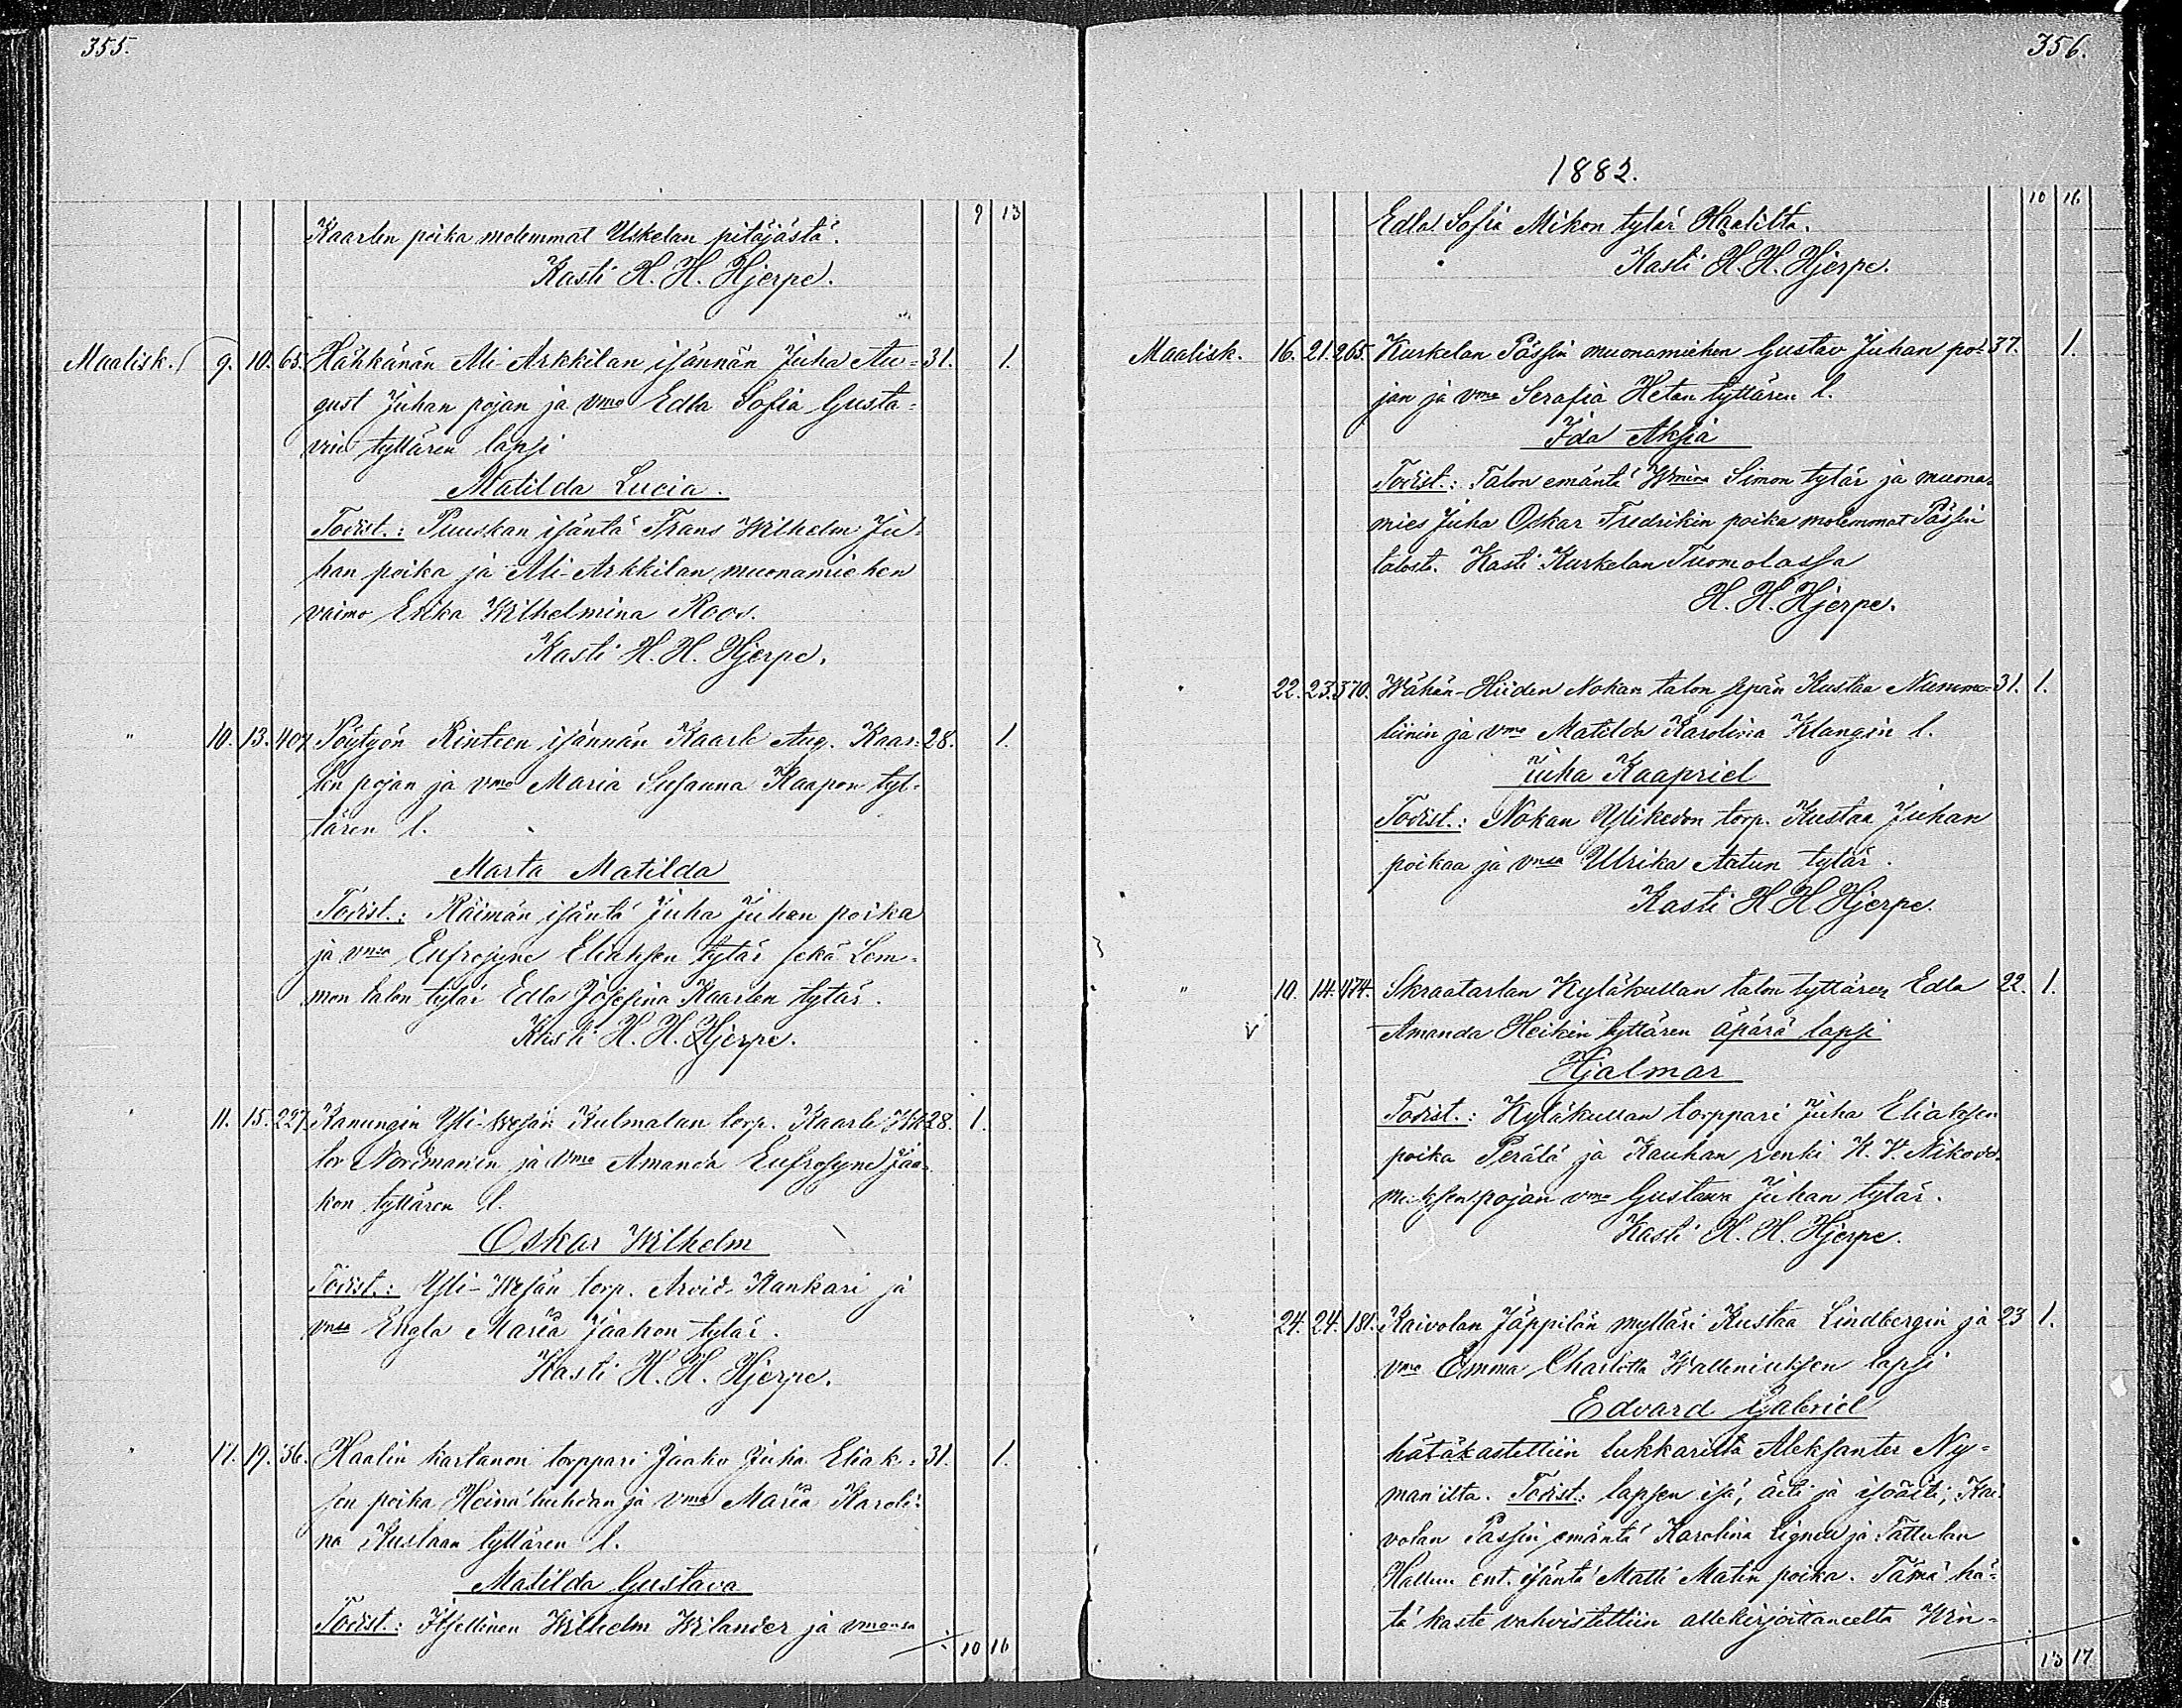 355.
9 13
Kaarlen poika molemmat Uskelan pitäjästä.
Kasti H. H. Hjerpe.
Maalisk. 9. 10. 65. Hähkänän Ali-Arkkilan isännän Juha Au= 31. 1.
gust Juhan pojan ja vmo Edla Sofia Gusta=
vin tyttären lapsi
Matilda Lucia.
Todist.: Puuskan isäntä Frans Wilhelm Ju=
han poika ja Ali-Arkkilan muonamiehen
vaimo Erika Wilhelmina Roos.
Kasti H. H. Hjerpe.
" 10. 13. 407 Pöytyön Rinteen isännän Kaarle Aug. Kaar= 28. 1.
len pojan ja vmo Maria Susanna Kaapon tyt=
tären l.
Marta Matilda
Todist.: Räimän isäntä Juha Juhan poika
ja vnsa Eufrosyne Eliaksen tytär sekä Lem=
mon talon tytär Edla Josefina Kaarlen tytär.
Kasti H. H. Hjerpe.
" 11. 15. 227. Kanungin Yli-Wesän Kulmalan torp. Kaarle 28. 1.
tor Nordmanin ja vmo Amanda Eufrosyne Jaa=
kon tyttären l.
Oskar Wilhelm
Todist.: Yli-Wesän torp. Arvid Kankari ja
vnsa Engla Maria Jaakon tytär.
Kasti H. H. Hjerpe.
" 17. 19. 36. Haalin kartanon torppari Jaako Juha Eliak= 31. 1.
sen poika Heinäluhdan ja vmo Maria Karoli=
na Kustaan tyttären l.
Matilda Gustava
Todist.: Itsellinen Wilhelm Wilander ja vmonsa
10 16
356.
1882.
10 16
Edla Sofia Mikon tytär Haalilta.
Kasti H. H. Hjerpe.
Maalisk. 16. 21. 265. Kurkelan Pässin muonamiehen Gustav Juhan po= 37. 1.
jan ja vmo Serafia Hetan tyttären l.
Ida Aksia
Todist.: Talon emäntä Wmina Simon tytär ja muona=
mies Juha Oskar Fredrikin poika molemmat Pässin
talosta. Kasti Kurkelan Tuomolassa
H. H. Hjerpe.
" 22. 23. 370. Wähän-Hiiden Nokan talon sepän Kustaa Nummo= 31. 1.
liinin ja vmo Matilda Karolina Klangin l.
Juha Kaapriel
Todist.: Nokan Ylikedon torp. Kustaa Juhan
poikaa ja vnsa Ulrika Aatun tytär.
Kasti H H Hjerpe.
" 10. 14. 474. Skraatarlan Kyläkullan talon tyttären Edla 22. 1.
v Amanda Heikin tyttären äpärä lapsi
Hjalmar
Todist.: Kyläkullan torppari Juha Eliaksen
poika Perälä ja Kauhan renki K. V. Nikode=
muksen pojan vmo Gustava Juhan tytär.
Kasti H. H. Hjerpe.
" 24. 24. 181. Kaivolan Jäppilän mylläri Kustaa Lindbergin ja 23 1.
vmo Emma Charlotta Walleniuksen lapsi
Edvard Gabriel
hätäkastettiin lukkarilta Aleksanter Ny=
man'ilta. Todist: lapsen isä, äiti ja isoäiti, Kai=
volan Pässin emäntä Karolina Lignell ja Tattulan
Hallun ent. isäntä Matti Matin poika. Tämä hä=
tä kaste vahvistettiin allekirjoittaneelta Win=
13 17